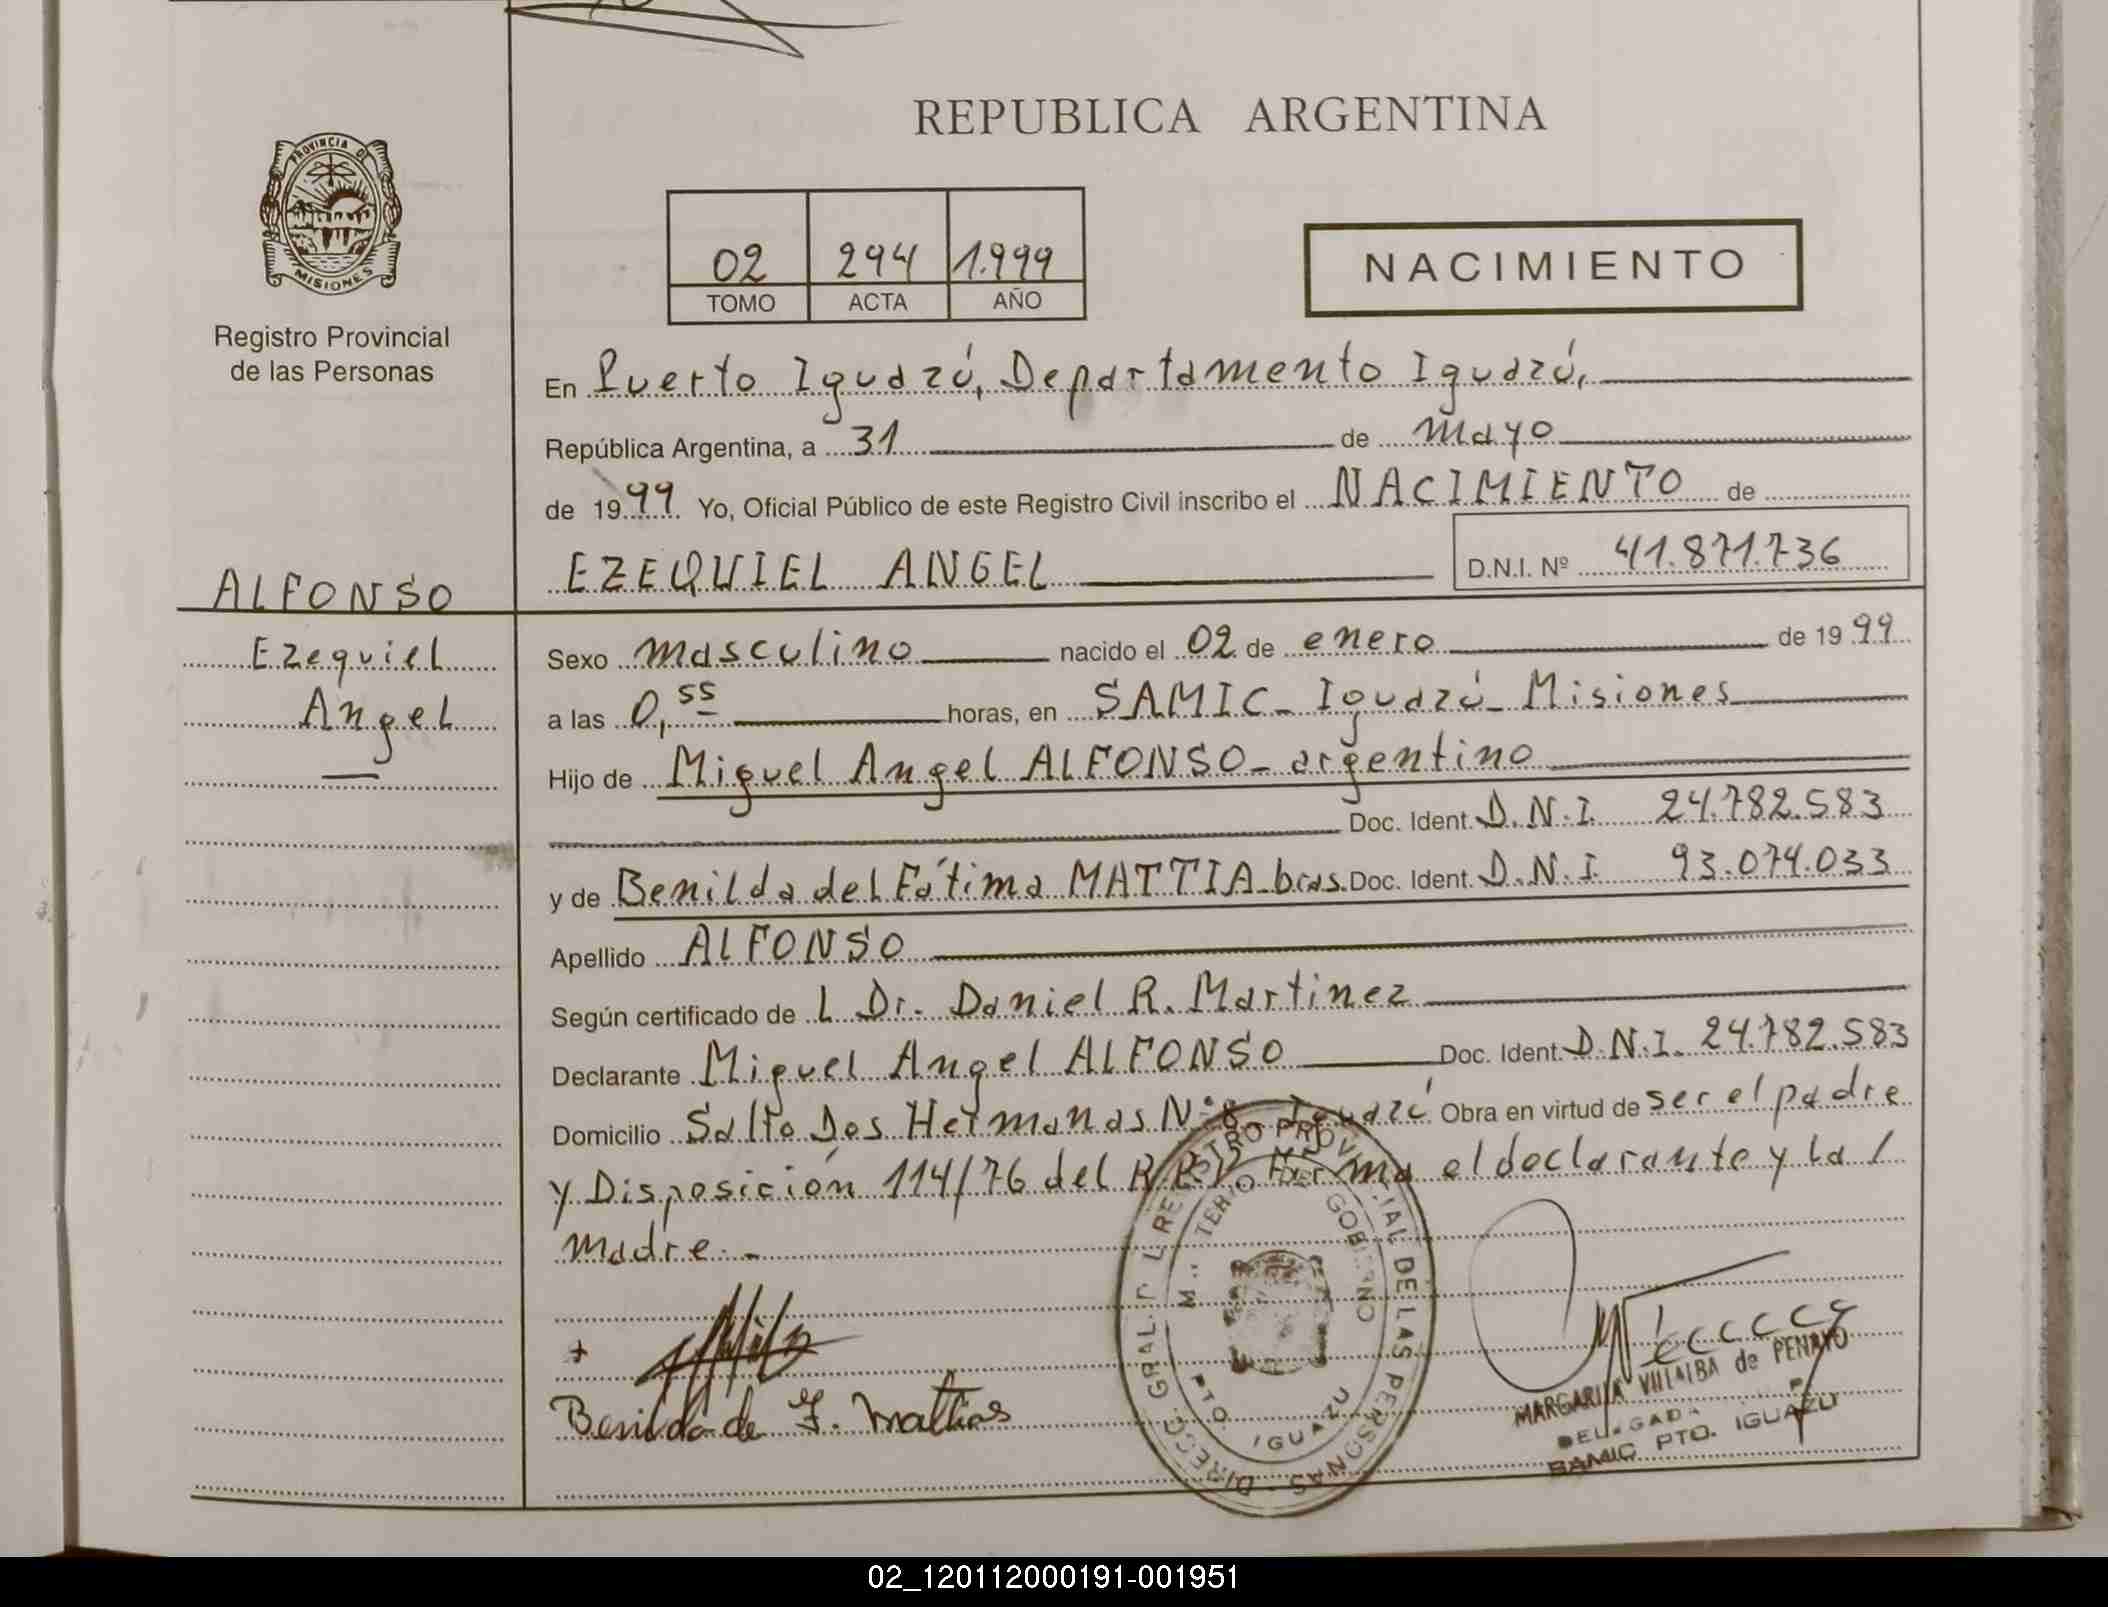 REPUBLICA ARGENTINA
PROVINCIA DE
MISIONES
Registro Provincial
de las Personas
02 294 1.999
TOMO ACTA AÑO
NACIMIENTO
En Puerto Iguazú, Departamento Iguazú,
República Argentina, a 31 de mayo
de 1999 Yo, Oficial Público de este Registro Civil inscribo el NACIMIENTO de
EZEQUIEL ANGEL D.N.I. Nº 41.871.736
ALFONSO
Ezequiel
Angel
Sexo masculino nacido el 02 de enero de 1999
a las 0,55 horas, en SAMIC_ Iguazú_ Misiones
Hijo de Miguel Angel ALFONSO_ argentino
Doc. Ident. D.N.I. 24.782.583
y de Benilda del Fátima MATTIA_bras. Doc. Ident. D.N.I. 93.074.033
Apellido ALFONSO
Según certificado de L Dr. Daniel R. Martinez
Declarante Miguel Angel ALFONSO Doc. Ident. D.N.I. 24.782.583
Domicilio Salto Dos Hermanas Nº 8_ Iguazú Obra en virtud de ser el padre
y Disposición 114/76 del R.P.P. Firma el declarante y la /
madre._
Benilda de F. Mattias
DIRECC. GRAL. DEL REGISTRO PROVINCIAL DE LAS PERSONAS
MINISTERIO DE GOBIERNO
PTO. IGUAZU
MARGARITA VILLALBA de PENAYO
DELEGADA
SAMIC PTO. IGUAZU
02_120112000191-001951